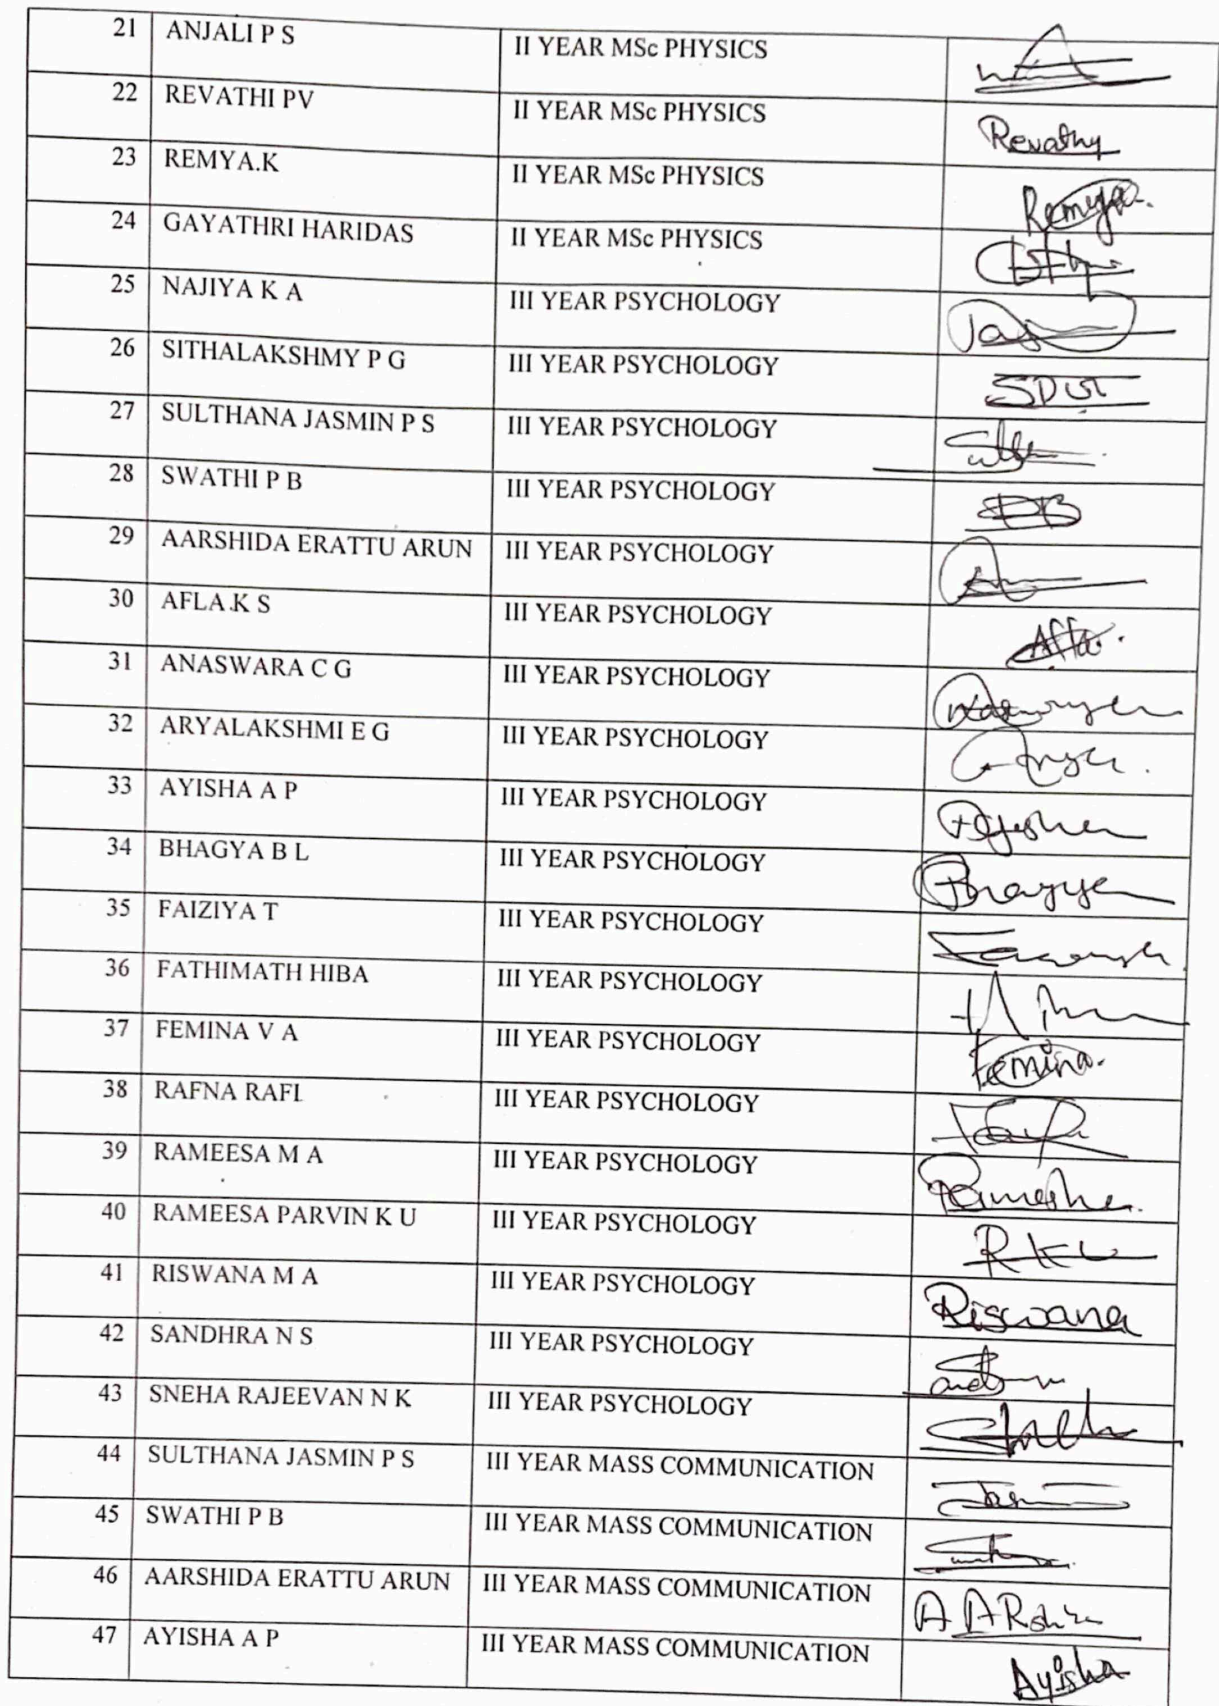 21 ANJALI P S II YEAR MSc PHYSICS
22 REVATHI PV II YEAR MSc PHYSICS Revathy
23 REMYA.K II YEAR MSc PHYSICS Remya.
24 GAYATHRI HARIDAS II YEAR MSc PHYSICS
25 NAJIYA K A III YEAR PSYCHOLOGY
26 SITHALAKSHMY P G III YEAR PSYCHOLOGY
27 SULTHANA JASMIN P S III YEAR PSYCHOLOGY
28 SWATHI P B III YEAR PSYCHOLOGY
29 AARSHIDA ERATTU ARUN III YEAR PSYCHOLOGY
30 AFLA.K S III YEAR PSYCHOLOGY Afla.
31 ANASWARA C G III YEAR PSYCHOLOGY
32 ARYALAKSHMI E G III YEAR PSYCHOLOGY
33 AYISHA A P III YEAR PSYCHOLOGY
34 BHAGYA B L III YEAR PSYCHOLOGY
35 FAIZIYA T III YEAR PSYCHOLOGY
36 FATHIMATH HIBA III YEAR PSYCHOLOGY
37 FEMINA V A III YEAR PSYCHOLOGY Femina.
38 RAFNA RAFI. III YEAR PSYCHOLOGY
39 RAMEESA M A III YEAR PSYCHOLOGY
40 RAMEESA PARVIN K U III YEAR PSYCHOLOGY
41 RISWANA M A III YEAR PSYCHOLOGY Riswana
42 SANDHRA N S III YEAR PSYCHOLOGY
43 SNEHA RAJEEVAN N K III YEAR PSYCHOLOGY
44 SULTHANA JASMIN P S III YEAR MASS COMMUNICATION
45 SWATHI P B III YEAR MASS COMMUNICATION
46 AARSHIDA ERATTU ARUN III YEAR MASS COMMUNICATION
47 AYISHA A P III YEAR MASS COMMUNICATION Ayisha